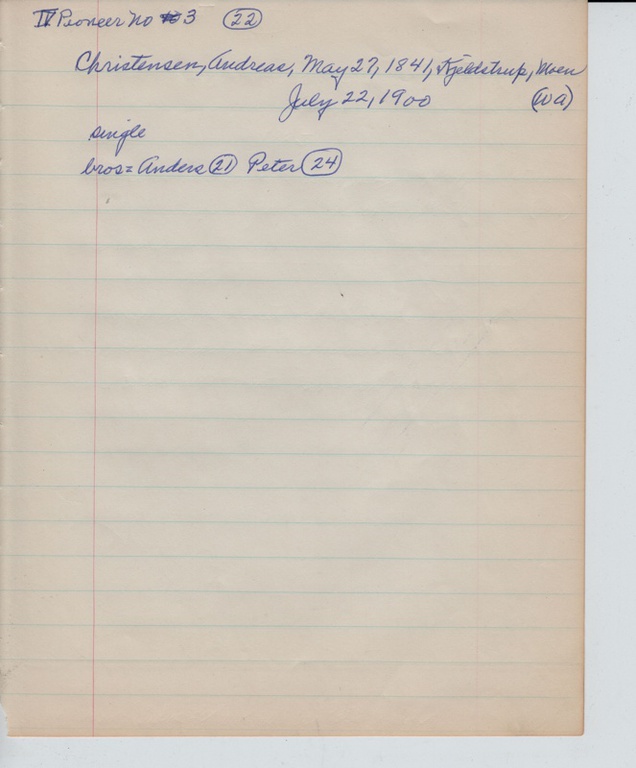 IV Pioneer No 3 (22)
Christensen, Andreas, May 27, 1841, Kjeldstrup, Moen
July 22, 1900 (Wa)
single
bros = Anders (21) Peter (24)